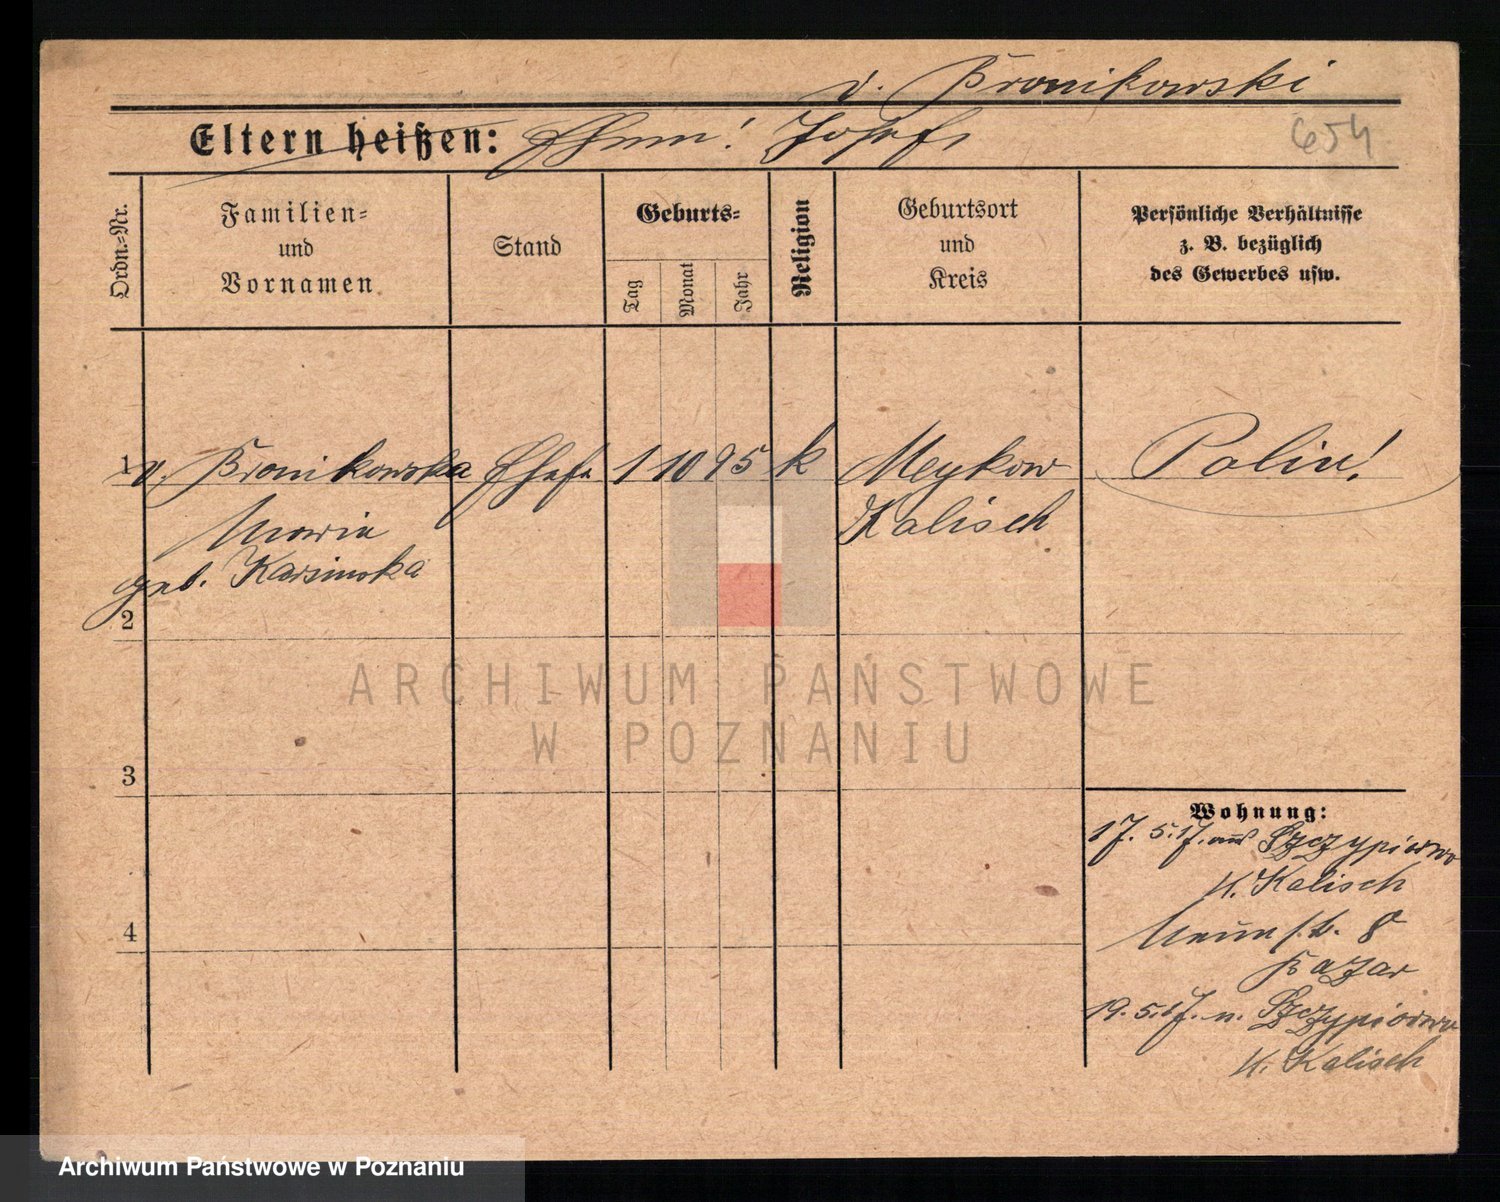 v. Bronikowski
Eltern heißen: Ehem! Josef
654
Ordn.-Nr.
Familien-
und
Vornamen
Stand
Geburts-
Tag
Monat
Jahr
Religion
Geburtsort
und
Kreis
Persönliche Verhältnisse
z. B. bezüglich
des Gewerbes usw.
1 v. Bronikowska Ehefr 1 10 95 k Meykow Polin!
Maria Kalisch
geb. Karsinska
2
ARCHIWUM PAŃSTWOWE
W POZNANIU
3
Wohnung:
17. 5. 17. aus Szczypiorno
K. Kalisch
4
8
Bazar
19. 5. 17. n. Szczypiorno
K. Kalisch
Archiwum Państwowe w Poznaniu